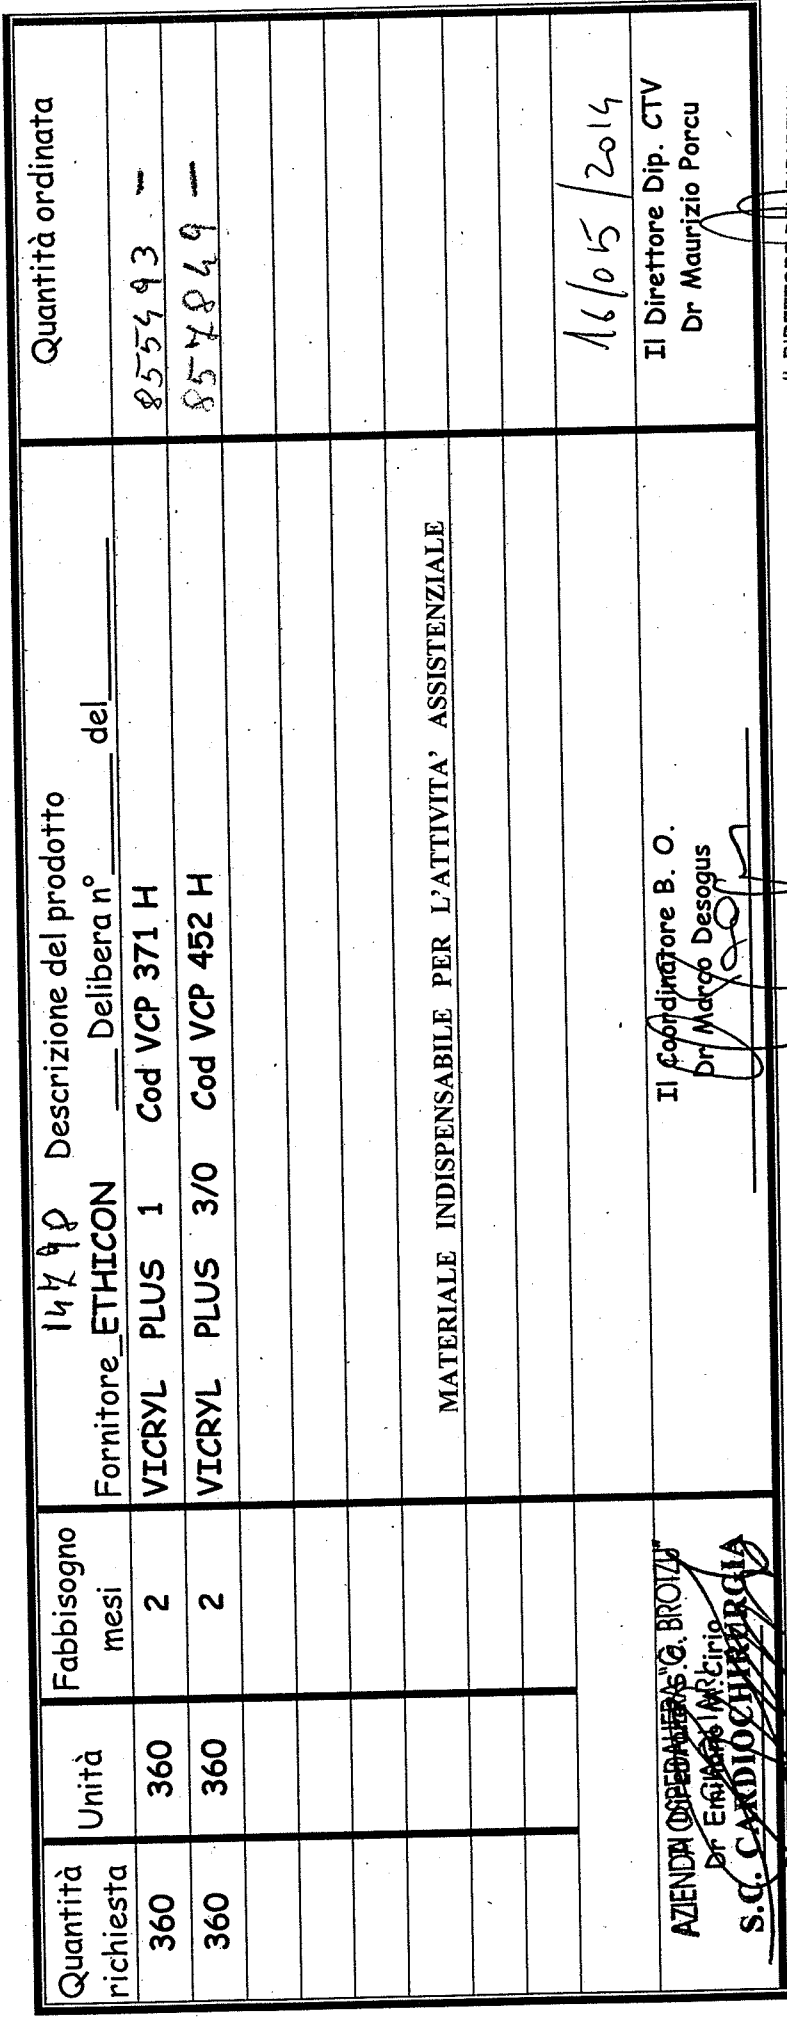 Quantità richiesta
Unità
Fabbisogno mesi
Descrizione del prodotto
Fornitore_ETHICON ___ Delibera n° ______ del ______
Quantità ordinata
360 360 2 VICRYL PLUS 1 Cod VCP 371 H 855493 -
360 360 2 VICRYL PLUS 3/0 Cod VCP 452 H 857849 -
MATERIALE INDISPENSABILE PER L'ATTIVITA' ASSISTENZIALE
16/05/2014
AZIENDA OSPEDALIERA "G. BROTZU"
Dr Emiliano M. Cirio
S.C. CARDIOCHIRURGIA
Il Coordinatore B. O.
Dr Marco Desogus
Il Direttore Dip. CTV
Dr Maurizio Porcu